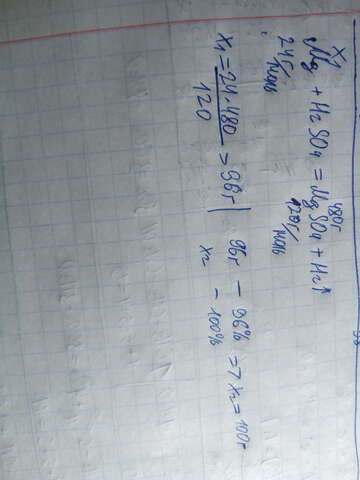 x₁ 480г
Mg + H₂SO₄ = MgSO₄ + H₂↑
24г/моль 120г/моль
x₁ = 24·480 / 120 = 96г | 96г – 96% => x₂ = 100г
x₂ – 100%